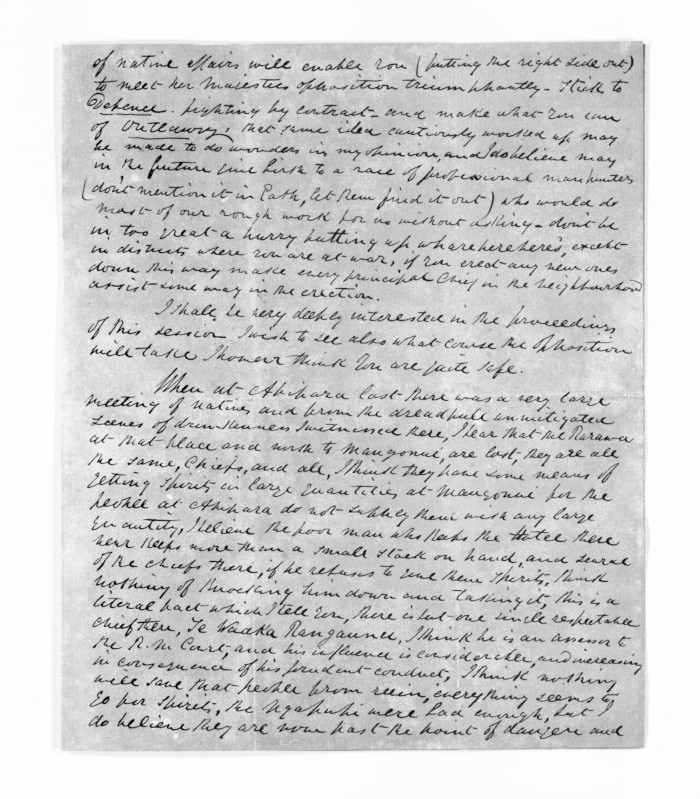 of native affairs will enable you (putting the right side out)
to meet her Majesties opposition triumphantly - Stick to
Defence. fighting by contract - and make what you can
of Outlawry, that same idea cautiously worked up may
be made to do wonders in my opinion, and I do believe may
in the future give birth to a race of professional man hunters
(dont mention it in Gath, let them find it out) who would do
most of our rough work for us without asking - dont be
in too great a hurry putting up wharehereheres, except
in districts where you are at war, if you erect any new ones
down this way make every principal Chief in the neighbourhood
assist some way in the erection.
I shall be very deeply interested in the proceedings
of this session I wish to see also what course the opposition
will take I however think you are quite safe.
When at Ahipara last there was a very large
meeting of natives and from the dreadfull unmitigated
scenes of drunkenness I witnessed there, I fear that the Rarawa
at that place and north to Mangonui, are lost, they are all
the same, Chiefs, and all, I think they have some means of
getting spirits in large quantities at Mangonui for the
people at Ahipara do not supply them with any large
quantity, I believe the poor man who keeps the Hotel there
never keeps more than a small stock on hand, and several
of the chiefs there, if he refuses to give them spirits, think
nothing of knocking him down and taking it, this is a
literal fact which I tell you, there is but one single respectable
chief there, Te Waaka Rangaunu, I think he is an assessor to
the R. M. Court, and his influence is considerable, and increasing
in consequence of his prudent conduct, I think nothing
will save that people from ruin, everything seems to
go for spirits, the Ngapuhi were bad enough, but I
do believe they are now past the point of danger and